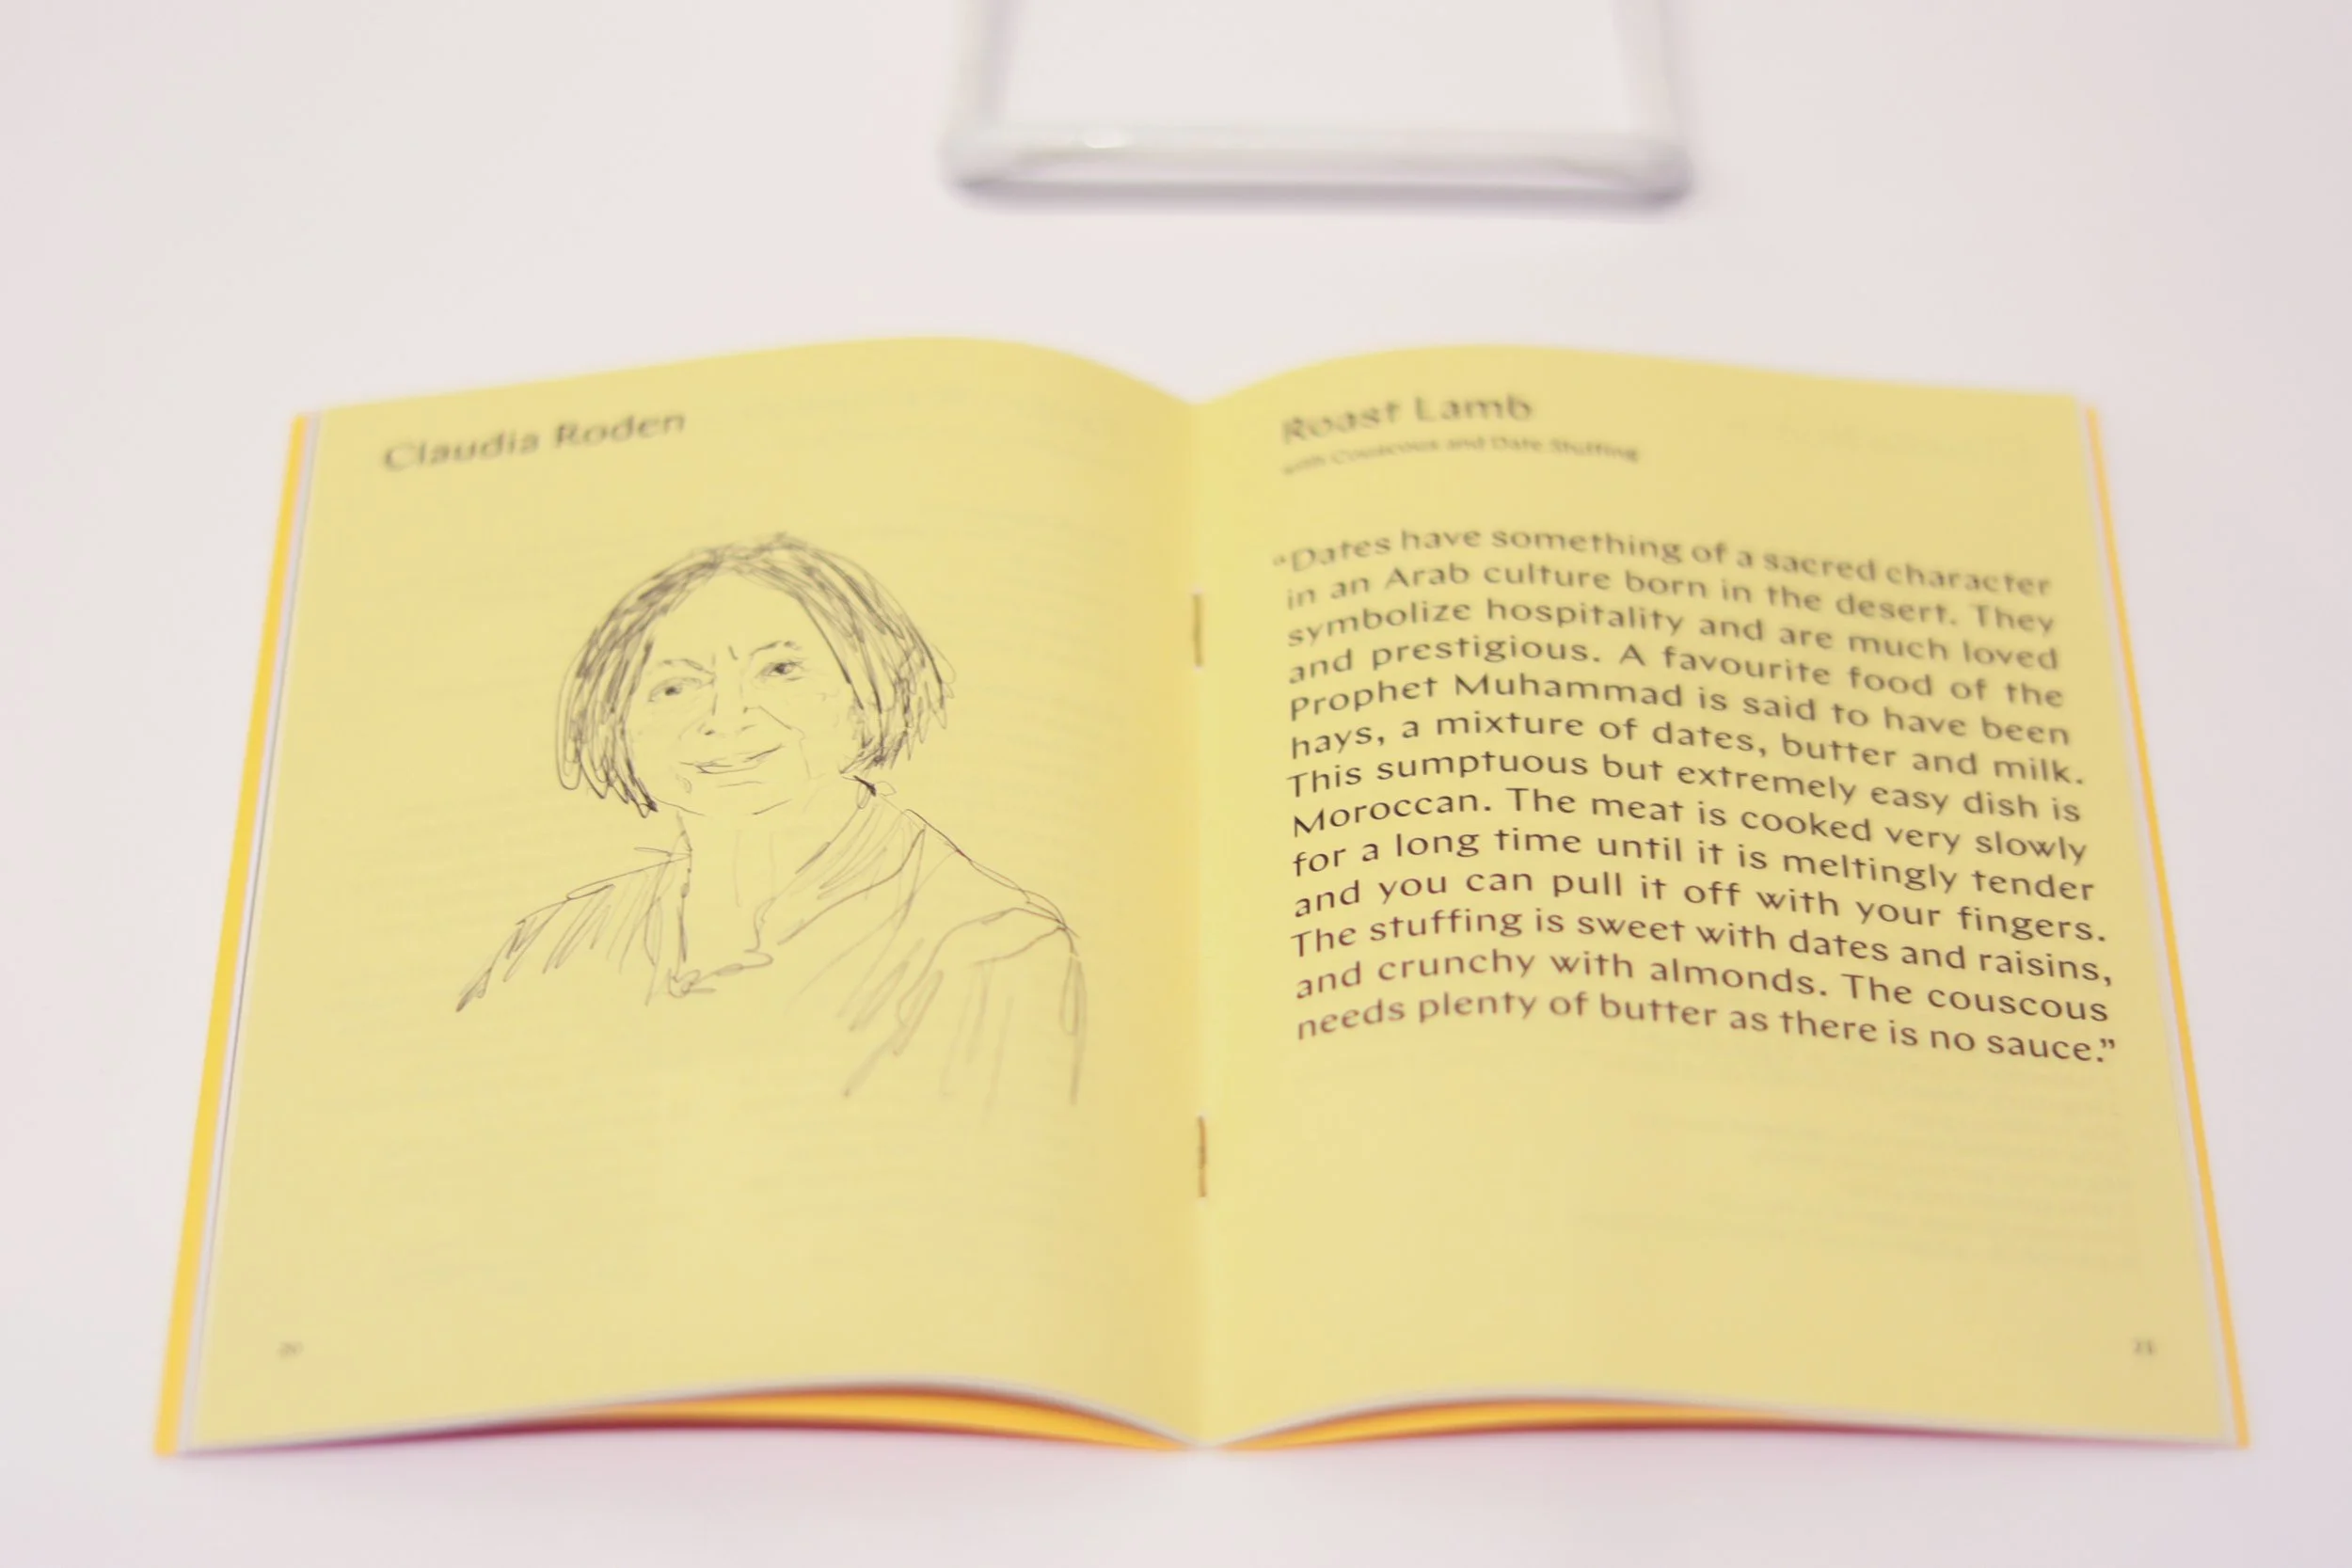 Claudia Roden
Roast Lamb
with Couscous and Date Stuffing
“Dates have something of a sacred character
in an Arab culture born in the desert. They
symbolize hospitality and are much loved
and prestigious. A favourite food of the
Prophet Muhammad is said to have been
hays, a mixture of dates, butter and milk.
This sumptuous but extremely easy dish is
Moroccan. The meat is cooked very slowly
for a long time until it is meltingly tender
and you can pull it off with your fingers.
The stuffing is sweet with dates and raisins,
and crunchy with almonds. The couscous
needs plenty of butter as there is no sauce.”